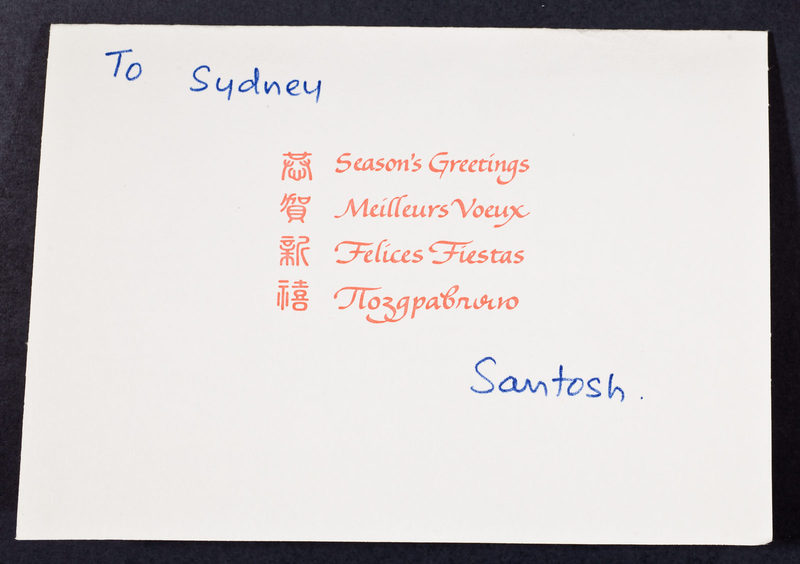 To Sydney
恭 Season's Greetings
賀 Meilleurs Voeux
新 Felices Fiestas
禧 Поздравляю
Santosh.